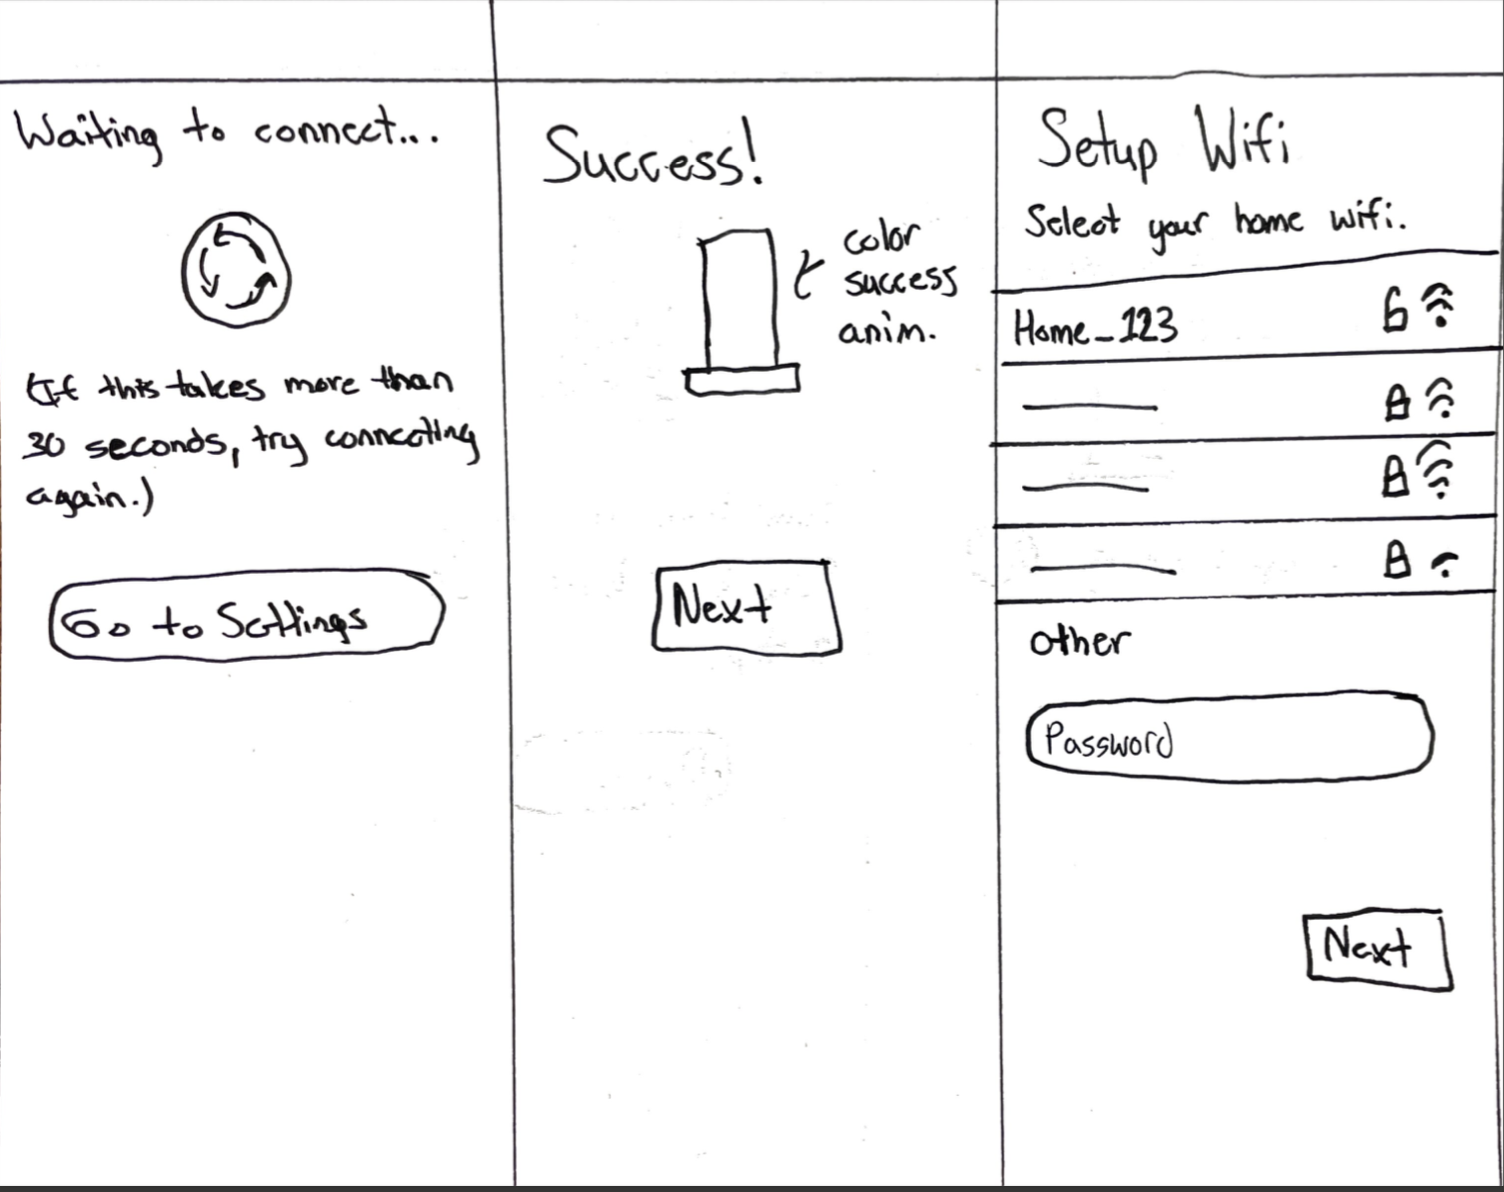 Waiting to connect...
(If this takes more than
30 seconds, try connecting
again.)
Go to Settings
Success!
color
success
anim.
Next
Setup Wifi
Select your home wifi.
Home_123
other
Password
Next